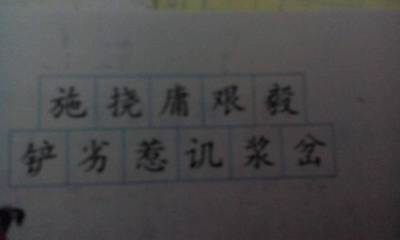 施挠庸艰毅
铲劣惹讥浆岔